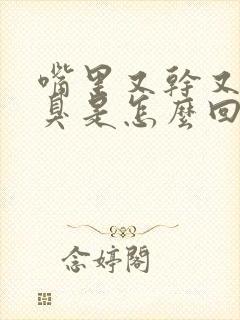 嘴里又幹又
臭是怎麼回
念婷閣